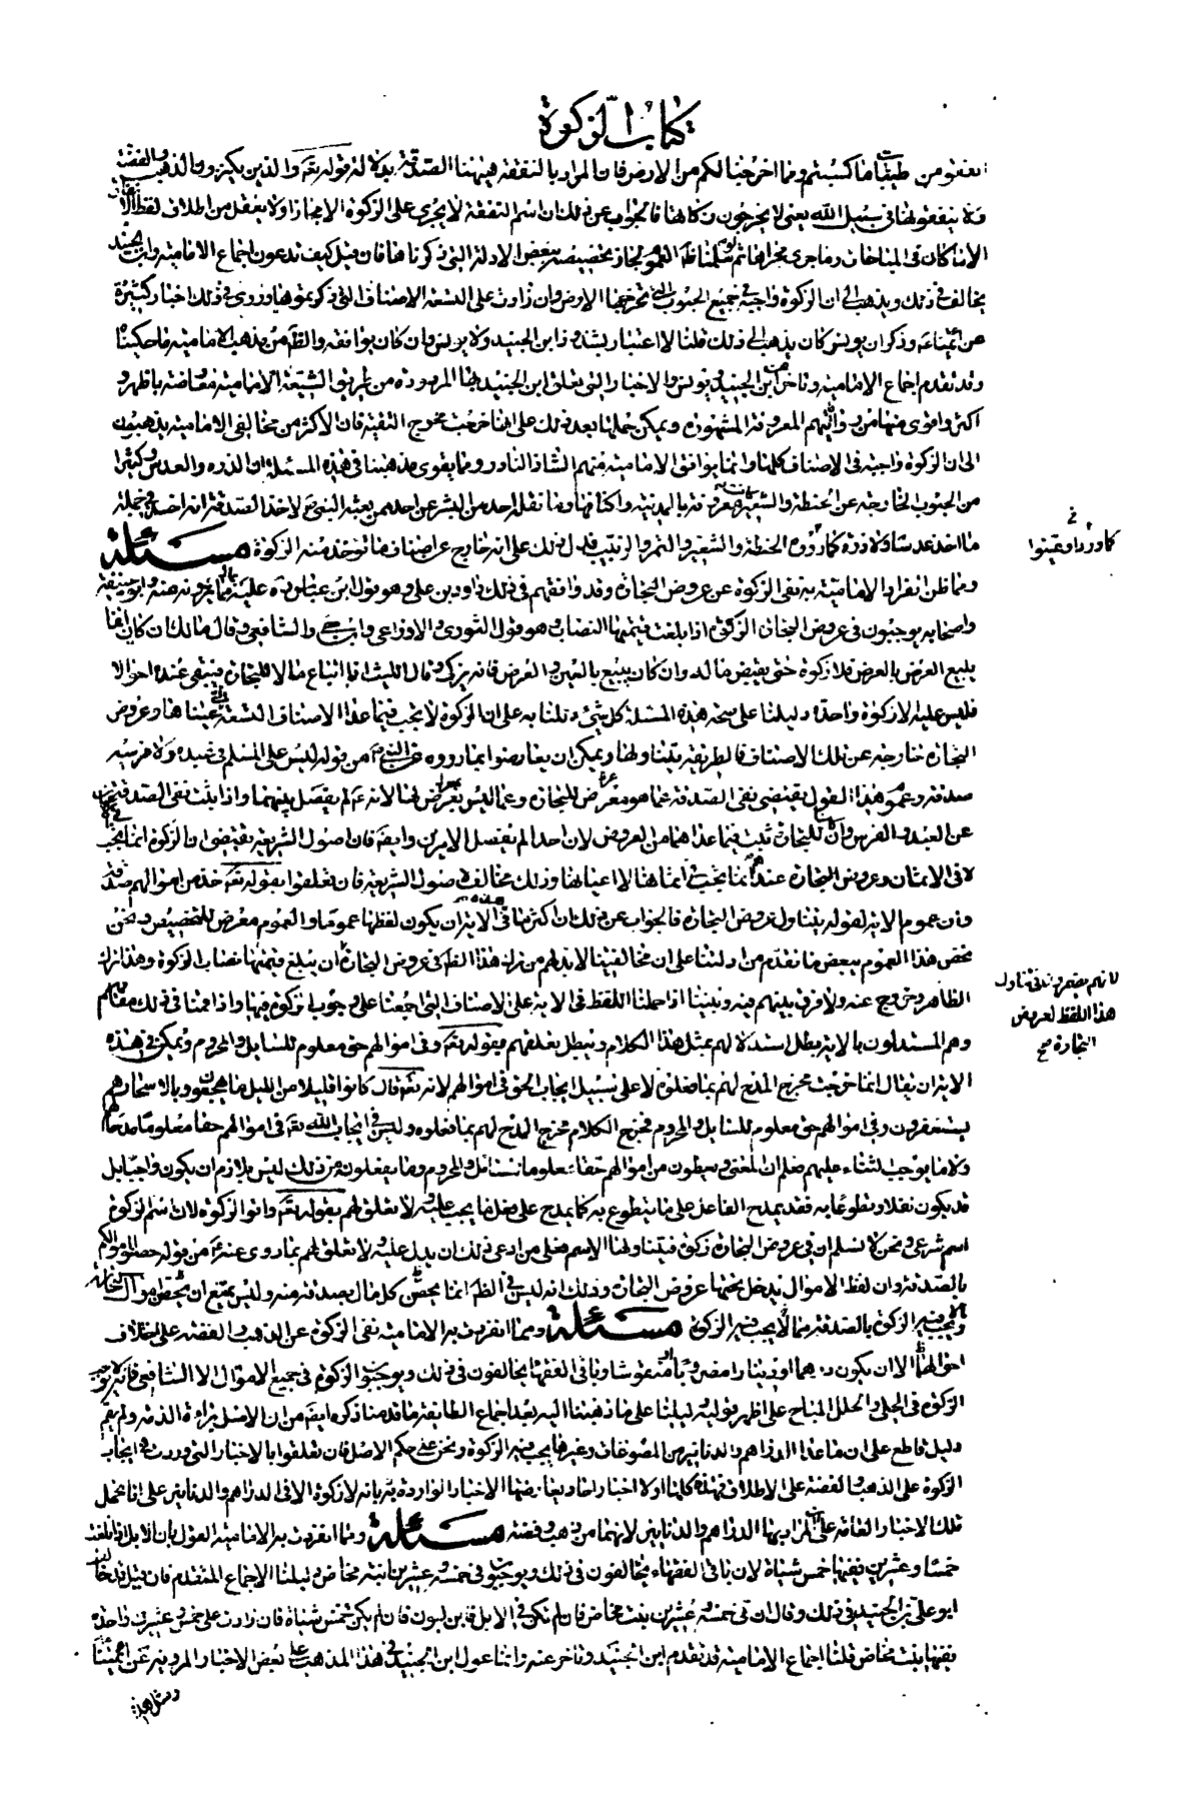 كتاب الزكوة
انفقوا من طيبات ما كسبتم ومما اخرجنا لكم من الارض فان المراد بالنفقة هيهنا الصدقة بدلالة قوله تعه والذين يكنزون الذهب والفضة
ولا ينفقونها في سبيل الله يعني لا يخرجون زكاتها فالجواب عن ذلك ان اسم النفقة لا يجرى على الزكوة الا مجازا ولا يعقل من اطلاق لفظ الانفاق
الا ما كان في المباحات وما جرى مجراها ثم لو سلمنا ظاهر العموم لجاز تخصيصه ببعض الادلة التي ذكرناها فان قيل كيف تدعون اجماع الامامية وابن الجنيد
يخالف في ذلك ويذهب الى ان الزكوة واجبة في جميع الحبوب التي تخرجها الارض وان زادت على التسعة الاصناف التي ذكرتموها وروى في ذلك اخبار كثيرة
عن ائمتناءه وذكر ان يونس كان يذهب الى ذلك قلنا لا اعتبار بشذوذ ابن الجنيد ولا يونس وان كان يوافقه والظه من مذهب الامامية ما حكيناه
وقد تقدم اجماع الامامية وتأخر عن ابن الجنيد ويونس والاخبار التي تعلق ابن الجنيد بها المروية من طريق الشيعة الامامية معارضة باظهر و
اكثر واقوى منها من رواياتهم المعروفة المشهورة ويمكن حملها بعد ذلك على انها خرجت مخرج التقية فان الاكثر من مخالفى الامامية يذهبون
الى ان الزكوة واجبة في الاصناف كلها وانما يوافق الامامية منهم الشاذ النادر ومما يقوى مذهبنا في هذه المسئلة ان الذرة والعدس وكثيرا
من الحبوب الخارجة عن الحنطة والشعير كانت معروفة بالمدينة واكنافها وما نقل احد من البشر عن احد ممن بعثه النبي ع لاخذ الصدقة انه اخذ في جملة
ما اخذ عدسا ولا ذرة كما رووه الحنطة والشعير والتمر والزبيب فدل ذلك على انه خارج عن اصناف ما تؤخذ منه الزكوة مسئلة
ومما ظن انفراد الامامية به نفى الزكوة عن عروض التجارة وقد وافقهم في ذلك داود بن علي وهو قول ابن عباس ره عليه فيما يروونه عنه وابو حنيفة
واصحابه يوجبون في عروض التجارة الزكوة اذا بلغت قيمتها النصاب وهو قول الثورى والاوزاعى وابن حى والشافعى وقال مالك ان كان انما
يبيع العرض بالعرض فلا زكوة حتى يقبض ماله وان كان يبيع بالعين والعرض فانه يزكى وقال الليث اذا ابتاع متاعا للتجارة فبقى عنده احوالا
فليس عليه الا زكوة واحدة دليلنا على صحة هذه المسئلة كل شئ دللنا به على ان الزكوة لا تجب فيما عدا الاصناف التسعة التي عيناها وعروض
التجارة خارجة عن تلك الاصناف فالطريقة يتناولها ويمكن ان يعارضوا بما رووه عن النبي ع من قوله ليس على المسلم في عبده ولا فرسه
صدقة وعموم هذا القول يقتضى نفى الصدقة عما هو معرض للتجارة وعما ليس بمعرض لها لانه ع لم يفصل بينهما واذا ثبت نفى الصدقة
عن العبد والفرس وان كانا للتجارة ثبت فيما عداهما من العروض لان احدا لم يفصل الامرين وايضه فان اصول الشريعة تقتضى ان الزكوة انما تجب
لا في الاثمان وعروض التجارة عندهم انما تجب في اثمانها لا اعيانها وذلك مخالف لاصول الشريعة فان تعلقوا بقوله تعه خذ من اموالهم صدقة
وان عموم الاية لقوله يتناول عروض التجارة فالجواب عن ذلك ان اكثر ما في هذه الاية ان يكون لفظها عموما والعموم معرض للتخصيص ونحن
نخص هذا العموم ببعض ما تقدم من ادلتنا على ان مخالفينا لا بد لهم من ترك هذا الظه في عروض التجارة ان يبلغ قيمتها نصاب الزكوة وهذا ترك
الظاهر وخروج عنه ولا فرق بينهم فيه وبيننا اذا حملنا اللفظ في الاية على الاصناف التي اجمعنا على وجوب الزكوة فيها واذا قمنا في ذلك مقامهم
وهم المستدلون بالاية بطل استدلالهم بمثل هذا الكلام ونبطل تعلقهم بقوله تعه وفى اموالهم حق معلوم للسايل والمحروم ويمكن في هذه
الاية ان يقال انما خرجت مخرج المدح لهم بما فعلوه لا على سبيل ايجاب الحق في اموالهم لانه تعه قال كانوا قليلا من الليل ما يهجعون وبالاسحار هم
يستغفرون وفى اموالهم حق معلوم للسايل والمحروم فخرج الكلام مخرج المدح لهم بما فعلوه وليس في ايجاب الله تعه في اموالهم حقا معلوما مدحا لهم
ولا ما يوجب الثناء عليهم فعلم ان المعنى ويعطون من اموالهم حقا معلوما للسائل والمحروم وما يفعلونه من ذلك ليس بلازم ان يكون واجبا بل
قد يكون نفلا وتطوعا به فقد يمدح الفاعل على ما يتطوع به كما يمدح على فعل ما يجب عليه ولا تعلق لهم بقوله تعه واتوا الزكوة لان اسم الزكوة
اسم شرعي ونحن لا نسلم ان في عروض التجارة زكوة فيتناولها الاسم فعلى من ادعى ذلك ان يدل عليه ولا تعلق لهم بما روى عنه ع من قوله حصنوا اموالكم
بالصدقة وان لفظ الاموال يدخل تحتها عروض التجارة وذلك انه ليس في الظه انما يحصن كل مال بصدقة منه وليس يمتنع ان يحصن اموال التجارة
وما لا يجب فيه الزكوة بالصدقة مما يجب فيه الزكوة مسئلة ومما انفردت به الامامية نفى الزكوة عن الذهب والفضة على اختلاف
احوالهما الا ان يكون درهما او دينارا مضروبا منقوشا وباقى الفقهاء يخالفون في ذلك ويوجبون الزكوة في جميع الاموال الا الشافعى فانه لا يوجب
الزكوة في الحلى والحلل المباح على اظهر قوليه دليلنا على ما ذهبنا اليه بعد اجماع الطايفة ما قدمنا ذكره ايضه من ان الاصل براءة الذمة ولم يقم
دليل قاطع على ان ما عدا الدراهم والدنانير من المصوغات وغيرها يجب فيه الزكوة ونحن على حكم الاصل فان تعلقوا بالاخبار التي وردت في ايجاب
الزكوة على الذهب والفضة على الاطلاق فهذه كلها اولا اخبار احاد يعارضها الاخبار الواردة بانه لا زكوة الا في الدراهم والدنانير على انا نحمل
تلك الاخبار العامة على ان المراد بها الدراهم والدنانير لانهما من ذهب وفضة مسئلة ومما انفردت به الامامية القول بان الابل اذا بلغت
خمسا وعشرين ففيها خمس شياة لان باقى الفقهاء يخالفون في ذلك ويوجبون في خمسة وعشرين ابنة مخاض دليلنا الاجماع المتقدم فان قيل قد خالف
ابو علي بن الجنيد في ذلك وقال ان في خمسة وعشرين بنت مخاض فان لم تكن في الابل فابن لبون فان لم يكن فخمس شياة فان زادت على خمس وعشرين واحدة
ففيها بنت مخاض قلنا اجماع الامامية قد تقدم ابن الجنيد وتاخر عنه وانما عول ابن الجنيد في هذا المذهب على بعض الاخبار المروية عن ائمتنا
ومثل هذه
في
كما ورد او عينوا
لانهم يضمرون في تناول
هذا اللفظ لعروض
التجارة صح